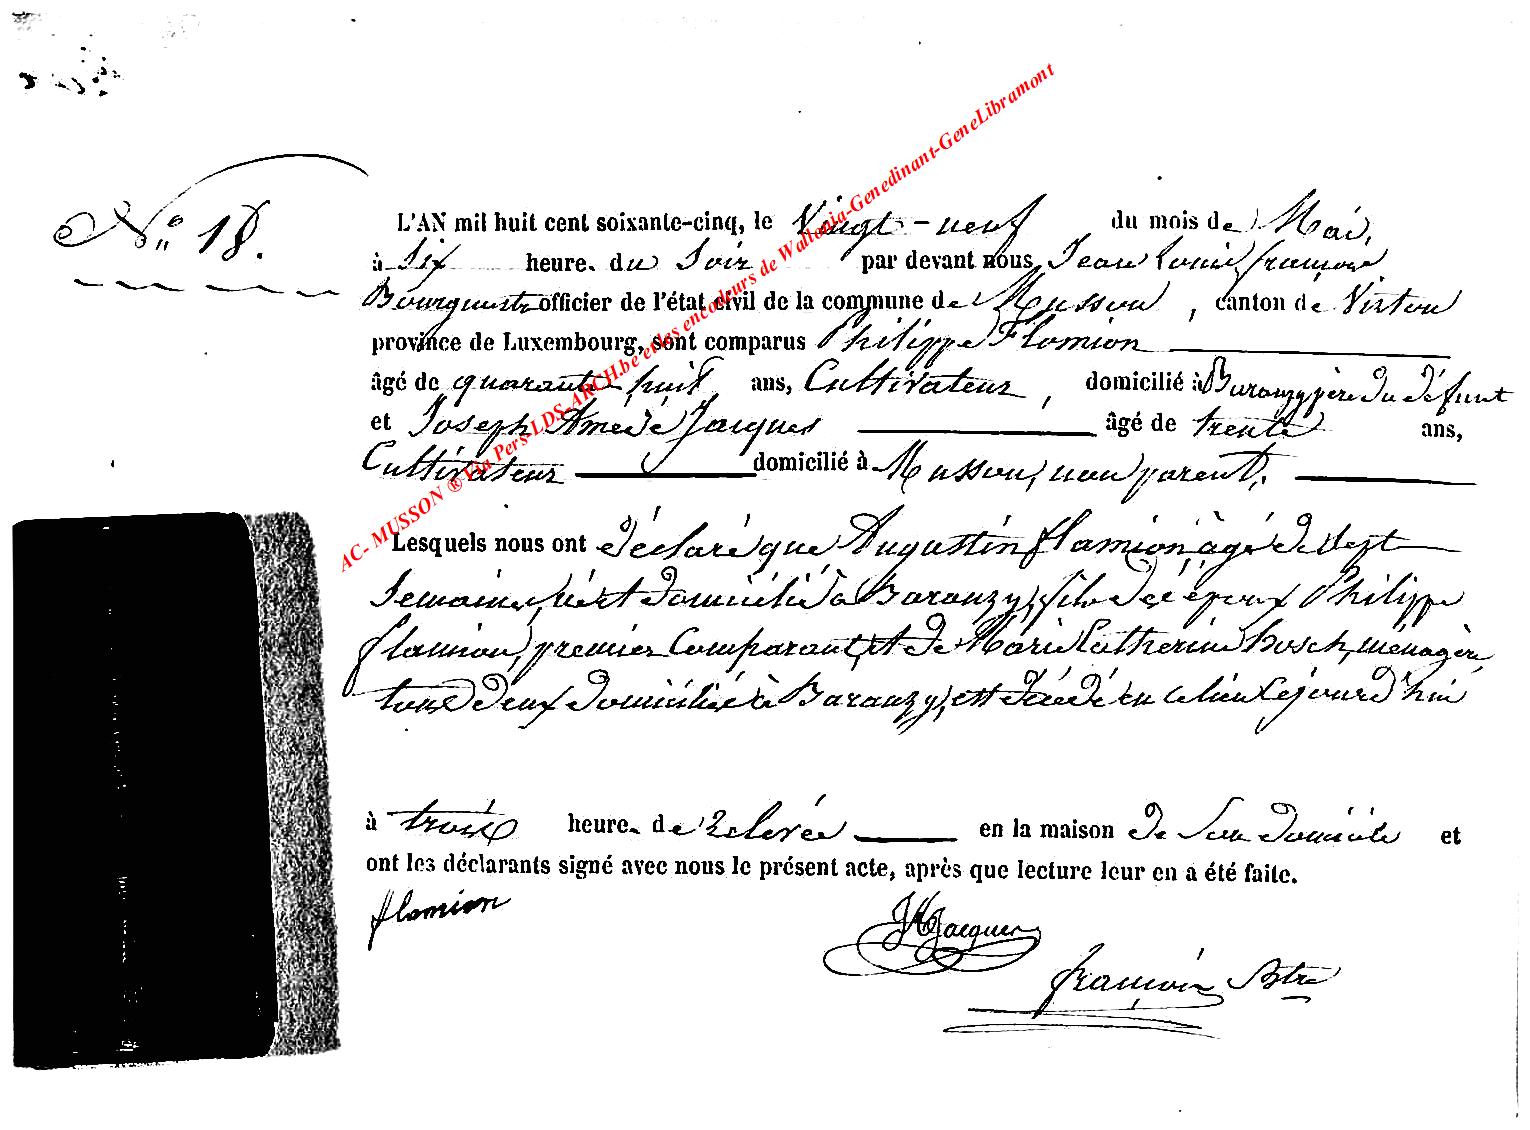 N° 18.
L'AN mil huit cent soixante-cinq, le Vingt-neuf du mois de Mai,
à Six heure. du Soir par devant nous Jean Louis françois
Bourguestre officier de l'état civil de la commune de Musson, canton de Virton
province de Luxembourg, sont comparus Philippe Flamion
âgé de quarante huit ans, Cultivateur, domicilié à Baranzy père du défunt
et Joseph Amédé Jacques âgé de trente ans,
Cultivateur domicilié à Musson, non parent.
Lesquels nous ont déclaré que Augustin flamion âgé de Sept
Semaines, né et domicilié à Baranzy, fils des époux Philippe
flamion, premier Comparant, et de Marie Catherine Bosch, ménagère
tous deux domiciliés à Baranzy, est décédé en ce lieu Cejourd'hui
à trois heure. de relevée en la maison de Son domicile et
ont les déclarants signé avec nous le présent acte, après que lecture leur en a été faite.
flamion
JAJacques
françois Btre
AC- MUSSON ® Via Pers-LDS-ARCH.be et les encodeurs de Wallonia-Genedinant-GeneLibramont